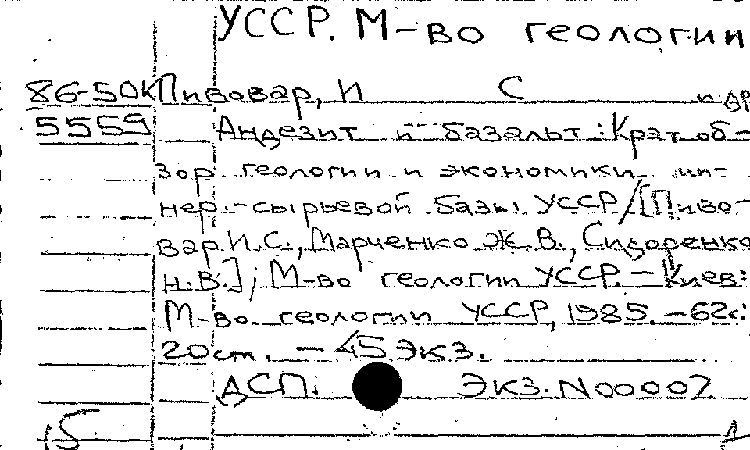 УССР. М-во геологии
86-50К Пивовар, И С и др
5559 Андезит и базальт: Крат. об-
зор геологии и экономики ми-
нер.-сырьевой базы УССР/[Пиво-
вар И.С., Марченко Ж.В., Сидоренко
Н.В.]; М-во геологии УССР. – Киев:
М-во геологии УССР, 1985. – 62с.:
20см. – 45 экз.
ДСП. Экз. N00007
15